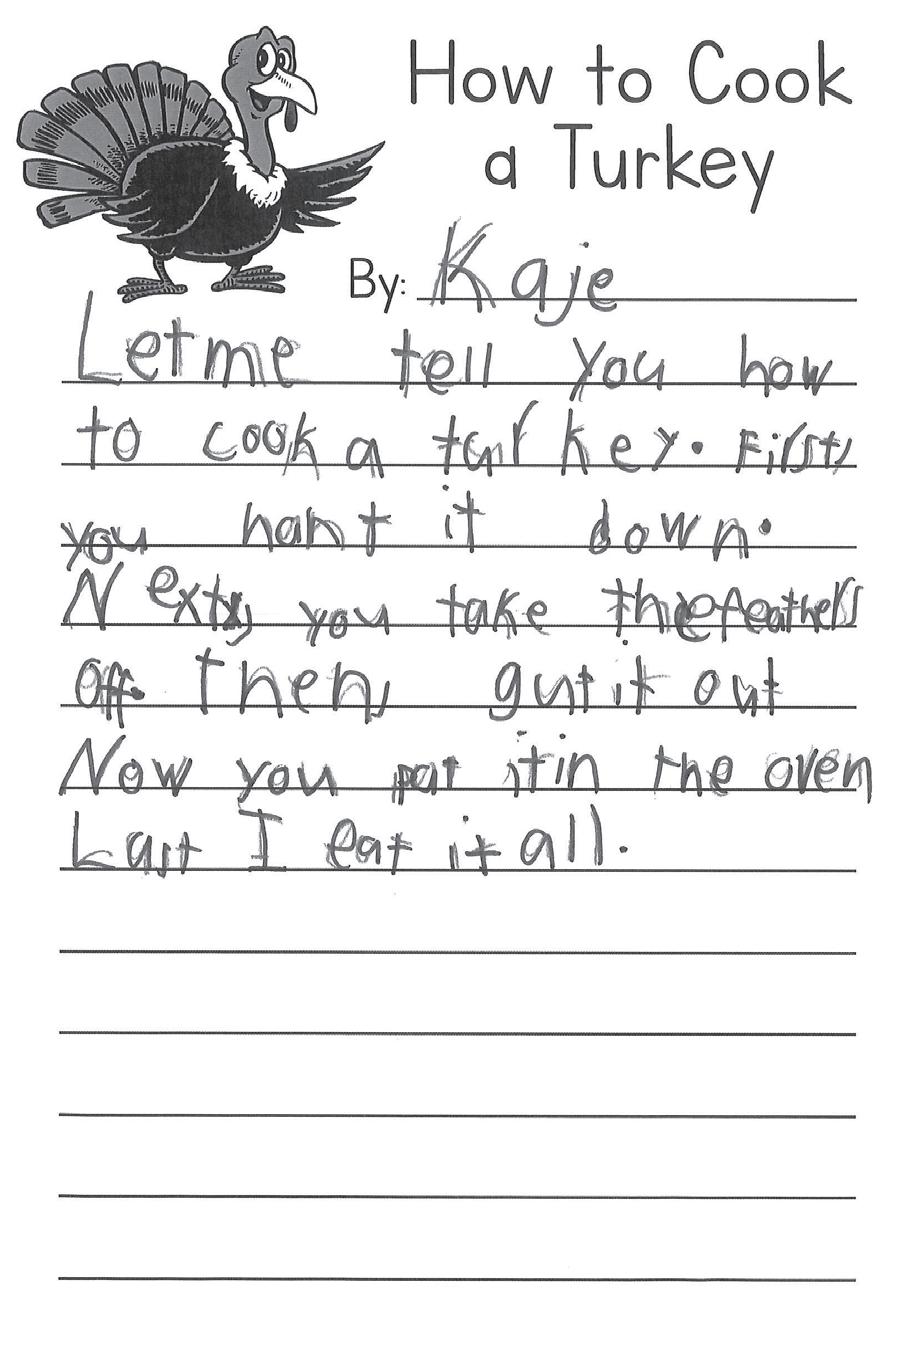 How to Cook
a Turkey
By: Kaje
Let me tell you how
to cook a turkey. First,
you hant it down.
Next, you take the feathers
off. Then, gut it out
Now you pat it in the oven
Last I eat it all.